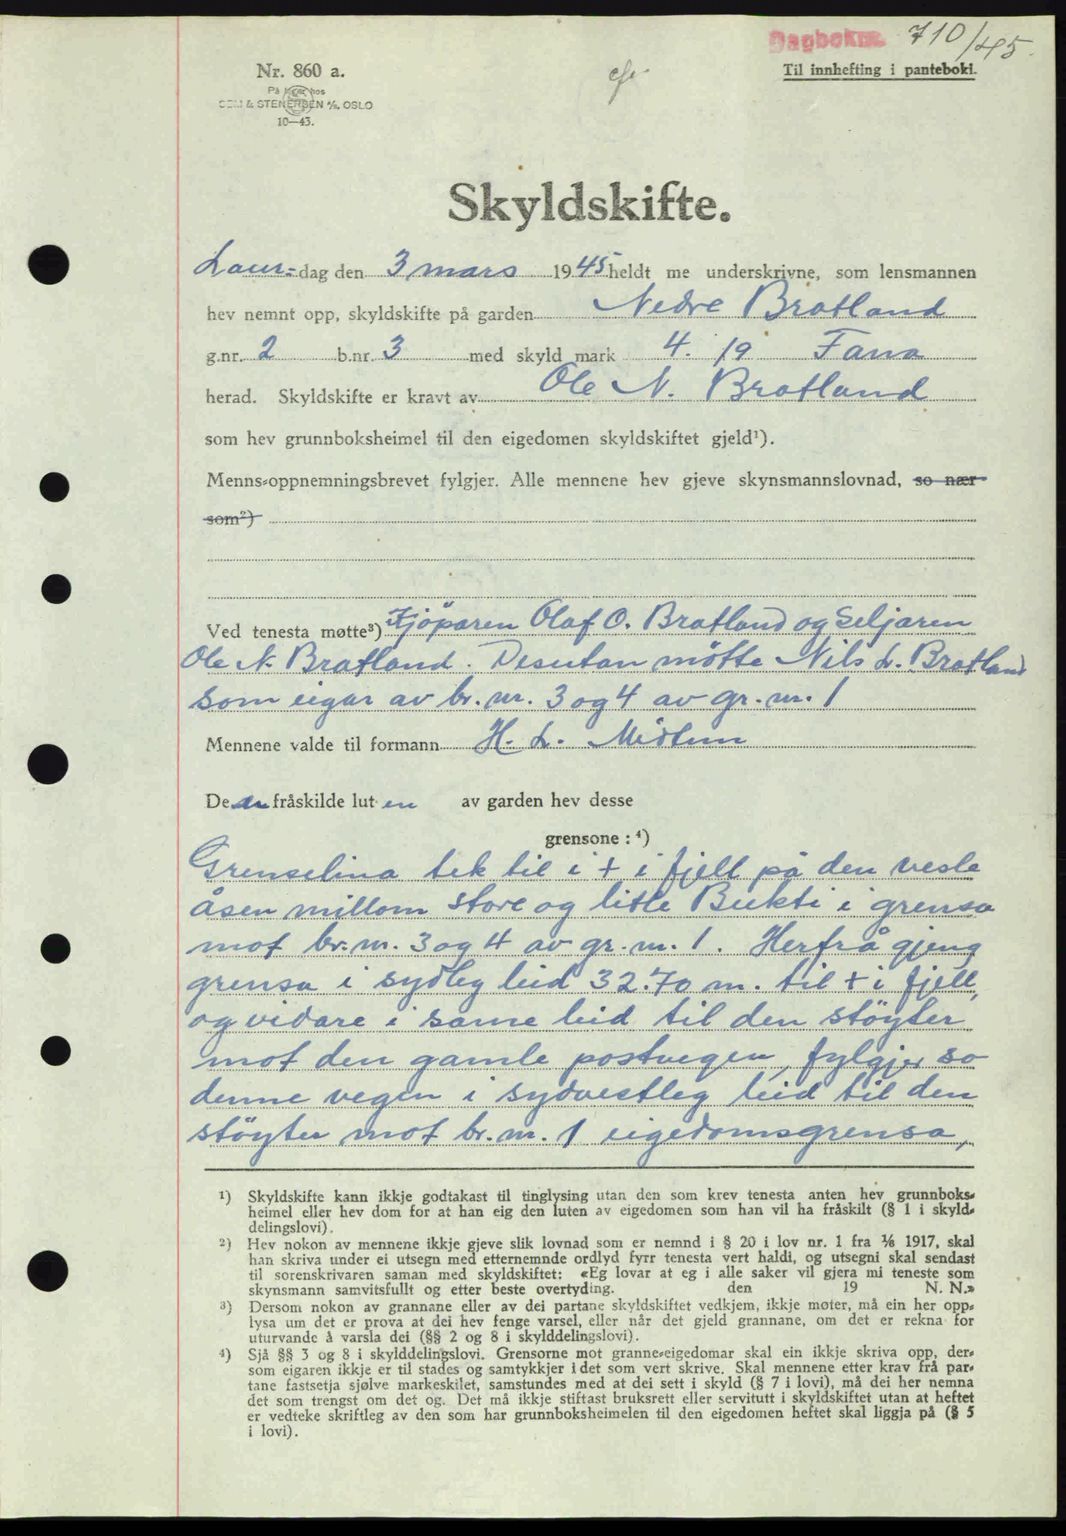 Dagboknr. 710/45.
Nr. 860 a.
Til innhefting i pantebok.
På lager hos
SEM & STENERSEN A/S, OSLO
10—43.
Skyldskifte.
Laur-dag den 3 mars 1945 heldt me underskrivne, som lensmannen
hev nemnt opp, skyldskifte på garden Nedre Bratland
g.nr. 2 b.nr. 3 med skyld mark 4.19 Fana
herad. Skyldskifte er kravt av Ole N. Bratland
som hev grunnboksheimel til den eigedomen skyldskiftet gjeld¹).
Menns-oppnemningsbrevet fylgjer. Alle mennene hev gjeve skynsmannslovnad, so nær
som²)
Ved tenesta møtte³) Kjöparen Olaf O. Bratland og Seljaren
Ole N. Bratland. Desutan mötte Nils L. Bratland
som eigar av br. nr. 3 og 4 av gr. nr. 1
Mennene valde til formann H. L. Midtun
De n fråskilde lut en av garden hev desse
grensone : ⁴)
Grenselina tek til i + i fjell på den vesle
åsen millom store og litle Bukti i grensa
mot br. nr. 3 og 4 av gr. nr. 1. Herfrå gjeng
grensa i sydleg leid 32.70 m. til + i fjell,
og vidare i same leid til den støyter
mot den gamle postvegen, fylgjer so
denne vegen i sydvestleg leid til den
støyter mot br. nr. 1 eigedomsgrensa,
¹) Skyldskifte kann ikkje godtakast til tinglysing utan den som krev tenesta anten hev grunnboks-
heimel eller hev dom for at han eig den luten av eigedomen som han vil ha fråskilt (§ 1 i skyld-
delingslovi).
²) Hev nokon av mennene ikkje gjeve slik lovnad som er nemnd i § 20 i lov nr. 1 fra 1/6 1917, skal
han skriva under ei utsegn med etternemnde ordlyd fyrr tenesta vert haldi, og utsegni skal sendast
til sorenskrivaren saman med skyldskiftet: «Eg lovar at eg i alle saker vil gjera mi teneste som
skynsmann samvitsfullt og etter beste overtyding. den 19 N. N.»
³) Dersom nokon av grannane eller av dei partane skyldskiftet vedkjem, ikkje møter, må ein her opp-
lysa um det er prova at dei hev fenge varsel, eller når det gjeld grannane, om det er rekna for
uturvande å varsla dei (§§ 2 og 8 i skylddelingslovi).
⁴) Sjå §§ 3 og 8 i skylddelingslovi. Grensorne mot granne-eigedomar skal ein ikkje skriva opp, der-
som eigaren ikkje er til stades og samtykkjer i det som vert skrive. Skal mennene etter krav frå par-
tane fastsetja sjølve markeskilet, samstundes med at dei sett i skyld (§ 7 i lovi), må dei her nemna
det som trengst om det og. Det må ikkje stiftast bruksrett eller servitutt i skyldskiftet utan at heftet
er vedteke skriftleg av den som har grunnboksheimelen til den eigedomen heftet skal liggja på (§ 5
i lovi).